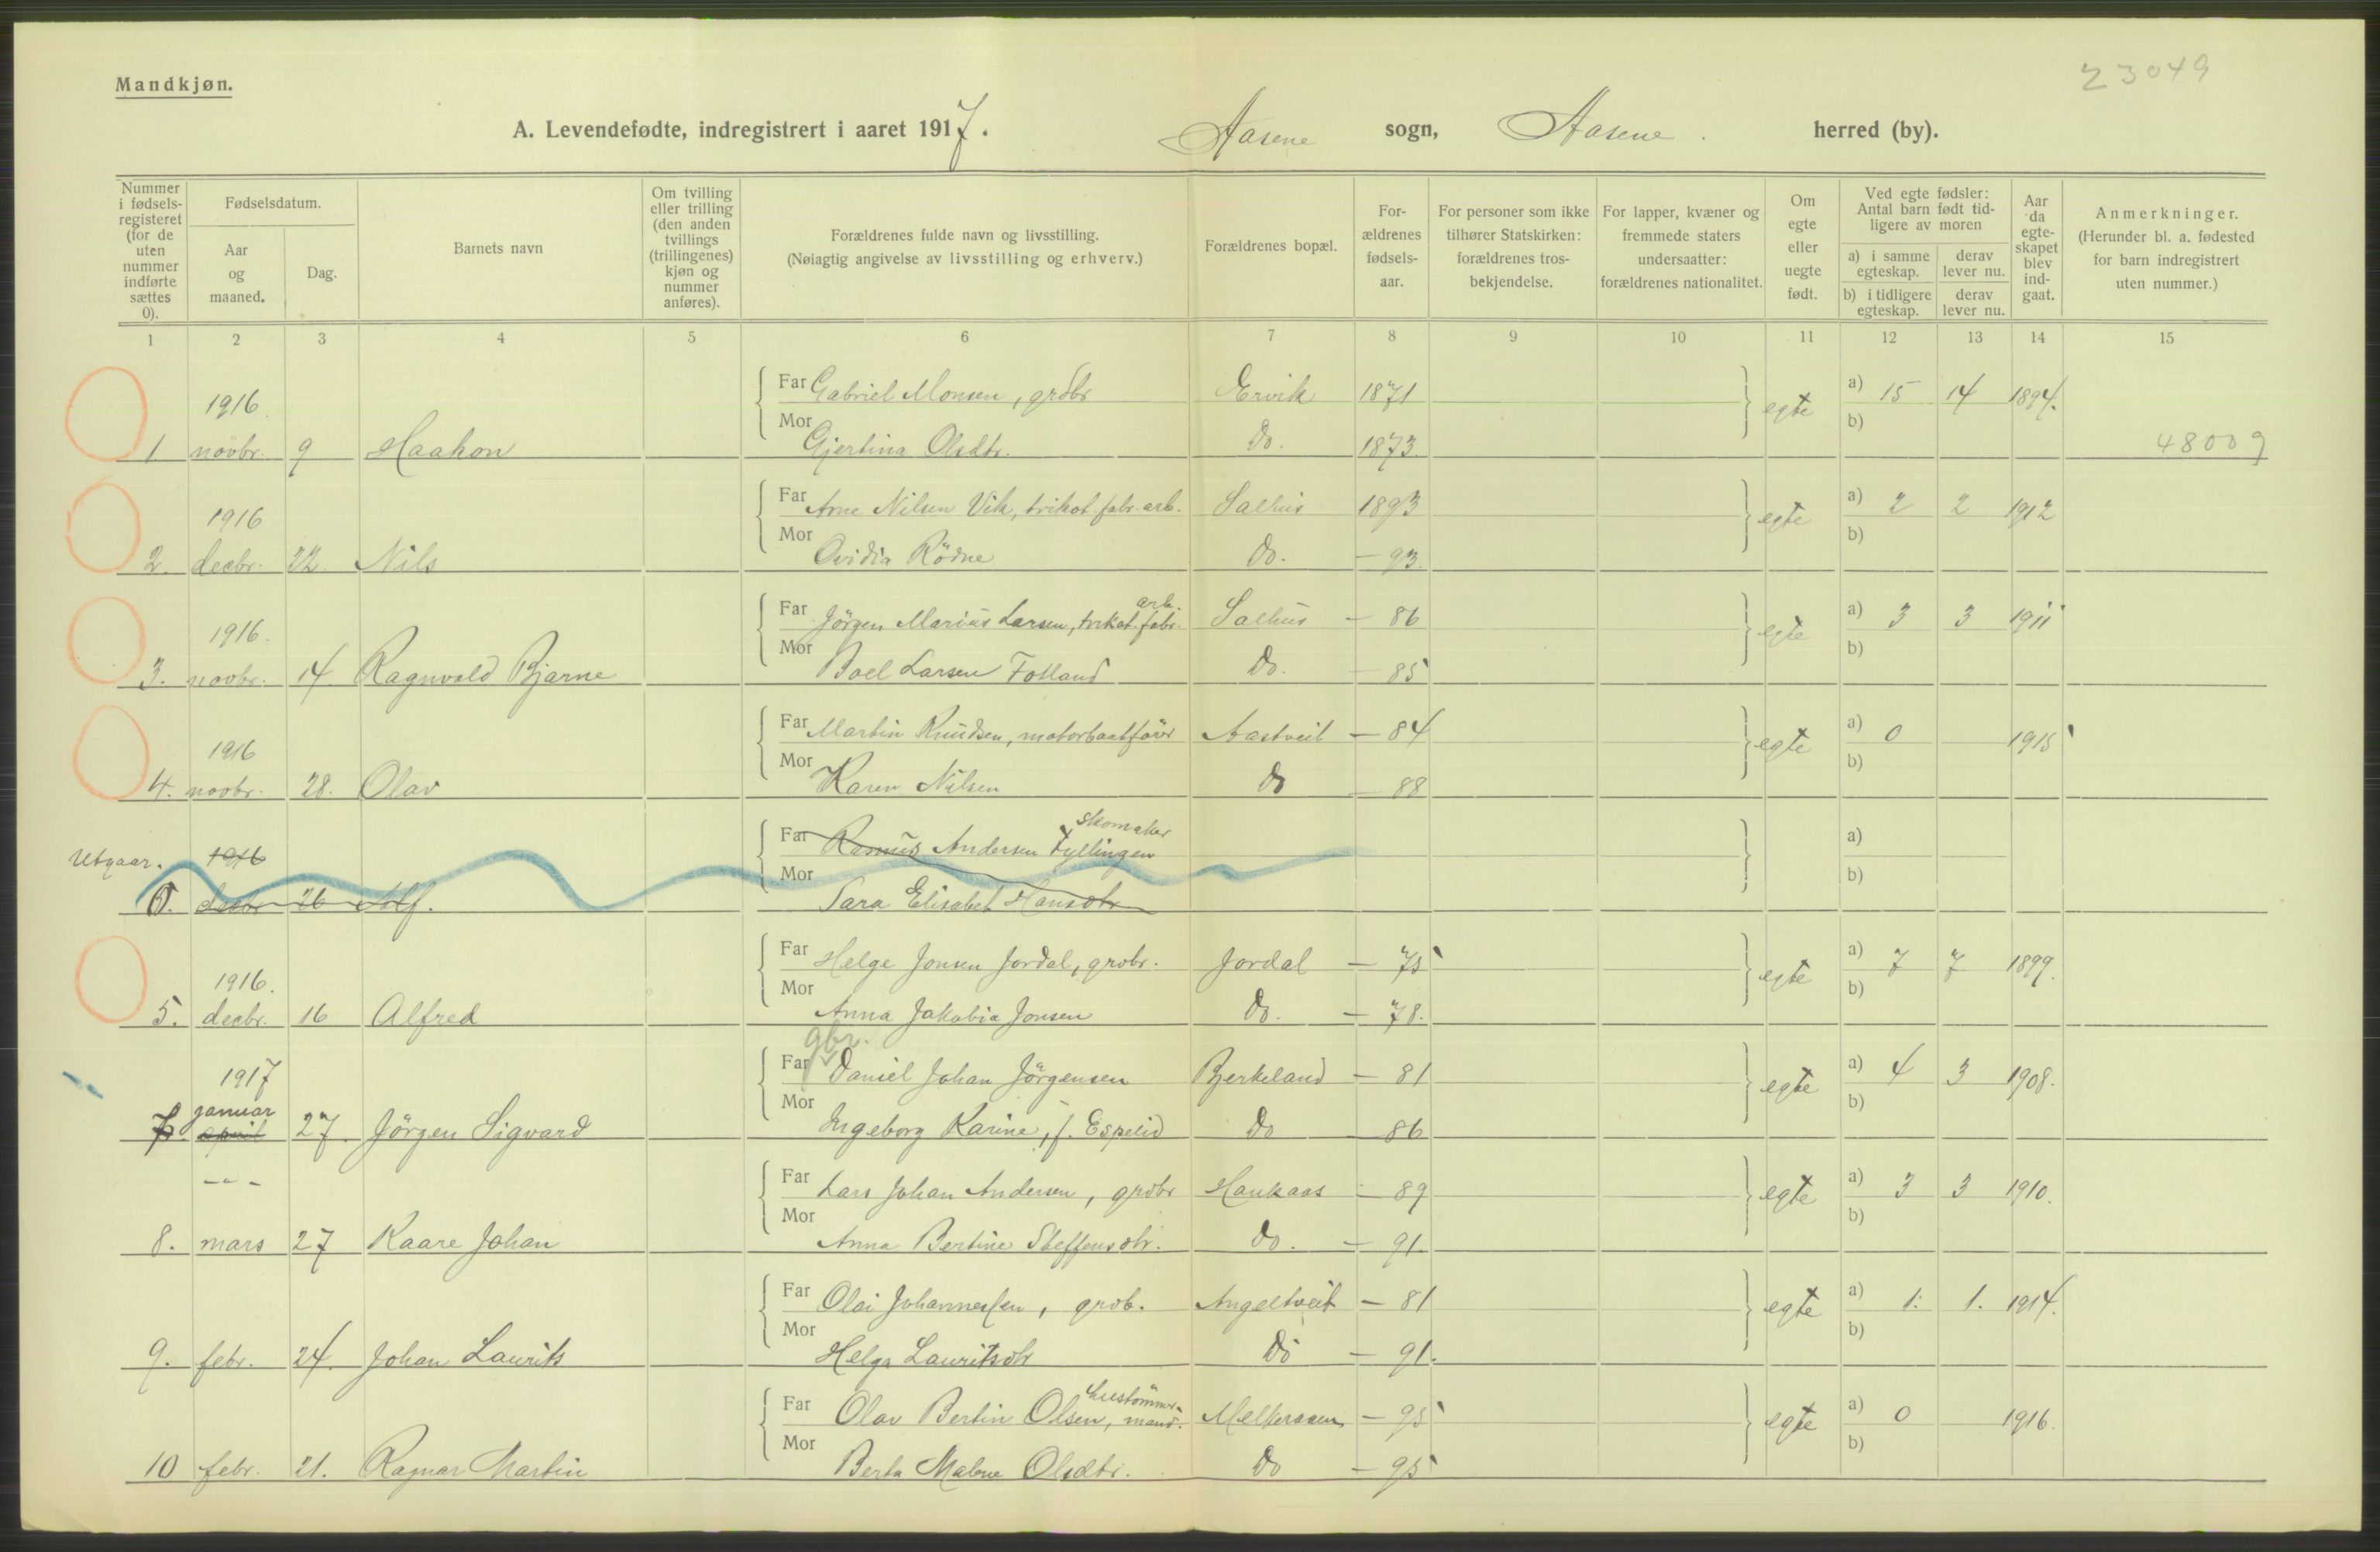 23049
Mandkjøn.
A. Levendefødte, indregistrert i aaret 1917. Aasene sogn, Aasene. herred (by).
Nummer i fødsels-registeret (for de uten nummer indførte sættes 0).
Fødselsdatum.
Aar og maaned.
Dag.
Barnets navn
Om tvilling eller trilling (den anden tvillings (trillingenes) kjøn og nummer anføres).
Forældrenes fulde navn og livsstilling.
(Nøiagtig angivelse av livsstilling og erhverv.)
Forældrenes bopæl.
For-ældrenes fødsels-aar.
For personer som ikke tilhører Statskirken: forældrenes tros-bekjendelse.
For lapper, kvæner og fremmede staters undersaatter: forældrenes nationalitet.
Om egte eller uegte født.
Ved egte fødsler: Antal barn født tid-ligere av moren
a) i samme egteskap.
derav lever nu.
b) i tidligere egteskap.
derav lever nu.
Aar da egte-skapet blev ind-gaat.
Anmerkninger.
(Herunder bl. a. fødested for barn indregistrert uten nummer.)
1 2 3 4 5 6 7 8 9 10 11 12 13 14 15
1916.
Far Gabriel Monsen, grdbr Ervik 1871 egte a) 15 14 1894.
b)
1 novbr. 9 Haakon Mor Gjertina Olsdtr. Do. 1873.
48009
1916
Far Arne Nilsen Vik, trikot. fabr. arb. Salhus 1893 egte a) 2 2 1912
b)
2. decbr. 22. Nils Mor Ovidia Rödne Do. — 93.
1916.
arb.
Far Jörgen Marius Larsen, trikot. fabr. Salhus — 86 egte a) 3 3 1911
b)
3. novbr. 14. Ragnvald Bjarne Mor Boel Larsen Fotland Do. — 85
1916
Far Martin Knudsen, motorbaatförer Aastveit — 84 egte a) 0 1915
b)
4. novbr. 28. Olav Mor Karen Nilsen Do — 88
Utgaar.
1916
skomaker
Far Rasmus Andersen Tyllingen a)
b)
0. decbr 26 Alf. Mor Sara Elisabet Hansdtr
1916.
Far Helge Jonsen Jordal, grdbr. Jordal — 75 egte a) 7 7 1899.
b)
5. decbr. 16 Alfred Mor Anna Jakobia Jonsen Do. — 78.
gbr.
1917
Far Daniel Johan Jörgensen Bjerkeland — 81 egte a) 4 3 1908.
b)
januar
7. april 27. Jörgen Sigvard Mor Ingeborg Karine, f. Espelid Do — 86
- " -
Far Lars Johan Andersen, grdbr Haukaas — 89 egte a) 3 3 1910.
b)
8. mars 27 Kaare Johan Mor Anna Bertine Steffensdtr. Do. — 91.
Far Olai Johannessen, grdb. Angeltveit — 81 egte a) 1. 1. 1914.
b)
9. febr. 24. Johan Laurits Mor Helga Lauritsdtr Do — 91.
hustömmer-
Far Olav Bertin Olsen, mand. — 95 egte a) 0 1916.
b)
10 febr. 21. Ragnar Martin Mor Berta Malene Olsdtr. Do — 95